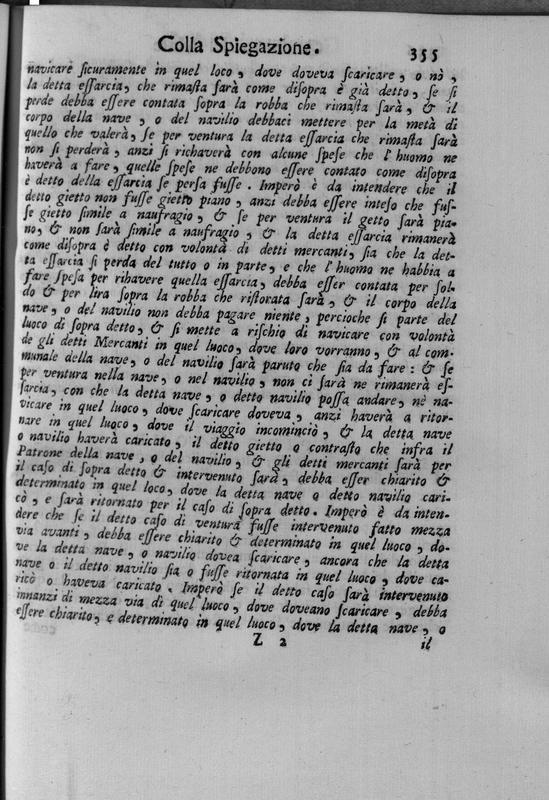 Colla Spiegazione. 355
navicare ſicuramente in quel loco, dove doveva ſcaricare, o nò,
la detta eſſarcia, che rimaſta ſarà come diſopra è già detto, ſe ſi
perde debba eſſere contata ſopra la robba che rimaſta ſarà, & il
corpo della nave, o del navilio debbaci mettere per la metà di
quello che valerà, ſe per ventura la detta eſſarcia che rimaſta ſarà
non ſi perderà, anzi ſi richaverà con alcune ſpeſe che l'huomo ne
haverà a fare, quelle ſpeſe ne debbono eſſere contato come diſopra
è detto della eſſarcia ſe perſa fuſſe. Imperò è da intendere che il
detto gietto non fuſſe gietto piano, anzi debba eſſere inteſo che fuſ-
ſe gietto ſimile a naufragio, & ſe per ventura il getto ſarà pia-
no, & non ſarà ſimile a naufragio, & la detta eſſarcia rimanerà
come diſopra è detto con volontà di detti mercanti, ſia che la det-
ta eſſarcia ſi perda del tutto o in parte, e che l'huomo ne habbia a
fare ſpeſa per rihavere quella eſſarcia, debba eſſer contata per ſol-
do & per lira ſopra la robba che riſtorata ſarà, & il corpo della
nave, o del navilio non debba pagare niente, percioche ſi parte del
luoco di ſopra detto, & ſi mette a riſchio di navicare con volontà
de gli detti Mercanti in quel luoco, dove loro vorranno, & al com-
munale della nave, o del navilio ſarà paruto che ſia da fare: & ſe
per ventura nella nave, o nel navilio, non ci ſarà ne rimanerà eſ-
ſarcia, con che la detta nave, o detto navilio poſſa andare, nè na-
vicare in quel luoco, dove ſcaricare doveva, anzi haverà a ritor-
nare in quel luoco, dove il viaggio incominciò, & la detta nave
o navilio haverà caricato, il detto gietto o contraſto che infra il
Patrone della nave, o del navilio, & gli detti mercanti ſarà per
il caſo di ſopra detto & intervenuto ſarà, debba eſſer chiarito &
determinato in quel loco, dove la detta nave o detto navilio cari-
cò, e ſarà ritornato per il caſo di ſopra detto. Imperò è da inten-
dere che ſe il detto caſo di ventura fuſſe intervenuto fatto mezza
via avanti, debba eſſere chiarito & determinato in quel luoco, do-
ve la detta nave, o navilio dovea ſcaricare, ancora che la detta
nave o il detto navilio ſia o fuſſe ritornata in quel luoco, dove ca-
ricò o haveva caricato. Imperò ſe il detto caſo ſarà intervenuto
innanzi di mezza via di quel luoco, dove doveano ſcaricare, debba
eſſere chiarito, e determinato in quel luoco, dove la detta nave, o
Z 2 il